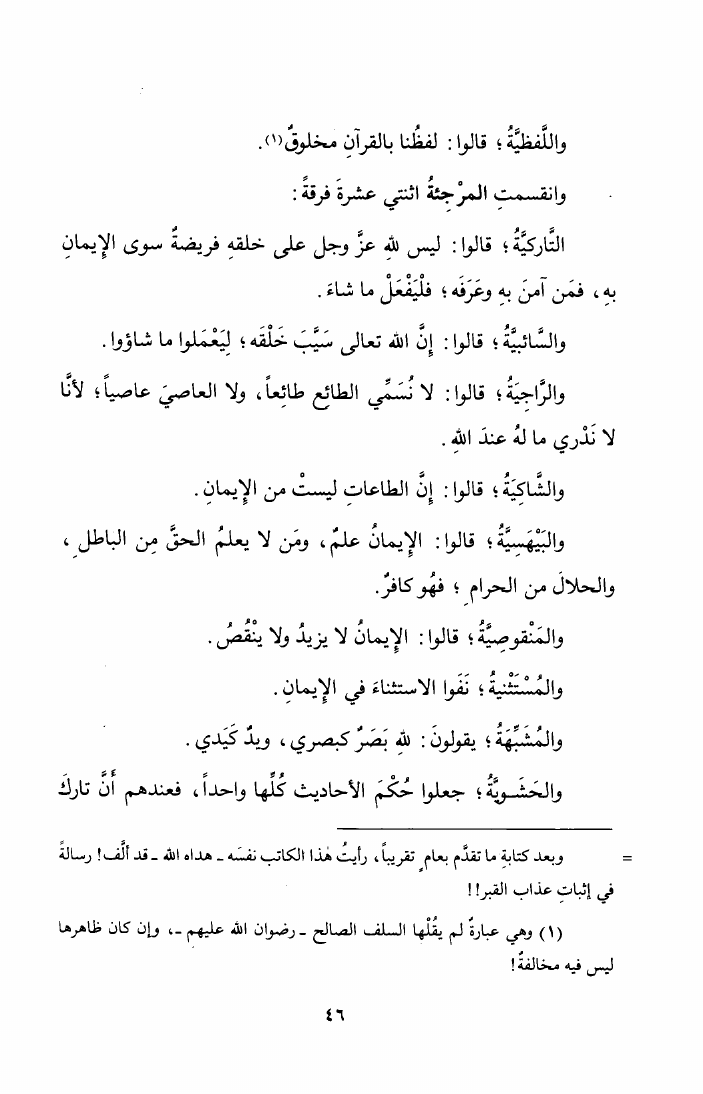 واللَّفظيَّةُ ؛ قالوا : لفظُنا بالقرآنِ مخلوقٌ(١).
وانقسمتِ المرْجئةُ اثنتي عشرةَ فرقةً :
التَّاركيَّةُ ؛ قالوا : ليس للهِ عزَّ وجل على خلقهِ فريضةٌ سوى الإيمانِ
بهِ ، فمَن آمنَ بهِ وعَرَفَه ؛ فلْيَفْعَلْ ما شاءَ .
والسَّائبيَّةُ ؛ قالوا : إنَّ الله تعالى سَيَّبَ خَلْقَه ؛ لِيَعْمَلوا ما شاؤوا .
والرَّاجيَةُ ؛ قالوا : لا نُسَمِّي الطائع طائعاً ، ولا العاصيَ عاصياً ؛ لأنَّا
لا نَدْري ما لهُ عندَ اللهِ .
والشَّاكيَةُ ؛ قالوا : إنَّ الطاعاتِ ليستْ من الإيمانِ .
والبَيْهَسِيَّةُ ؛ قالوا : الإيمانُ علمٌ ، ومَن لا يعلمُ الحقَّ مِن الباطلِ ،
والحلالَ من الحرامِ ؛ فهُو كافرٌ .
والمَنْقوصيَّةُ ؛ قالوا : الإيمانُ لا يزيدُ ولا ينْقُصُ .
والمُسْتَثْنيةُ ؛ نَفَوا الاستثناءَ في الإيمانِ .
والمُشَبِّهَةُ ؛ يقولونَ : للهِ بَصَرٌ كبصري ، ويدٌ كَيَدي .
والحَشَويَّةُ ؛ جعلوا حُكْمَ الأحاديث كُلِّها واحداً ، فعندهم أَنَّ تاركَ
= وبعد كتابةِ ما تقدَّم بعامٍ تقريباً ، رأيتُ هٰذا الكاتب نفسَه ـ هداه الله ـ قد ألَّف ! رسالةً
في إثباتِ عذاب القبر !!
(١) وهي عبارةٌ لم يقُلْها السلف الصالح ـ رضوان الله عليهم ـ، وإن كان ظاهرها
ليس فيه مخالفةٌ !
٤٦